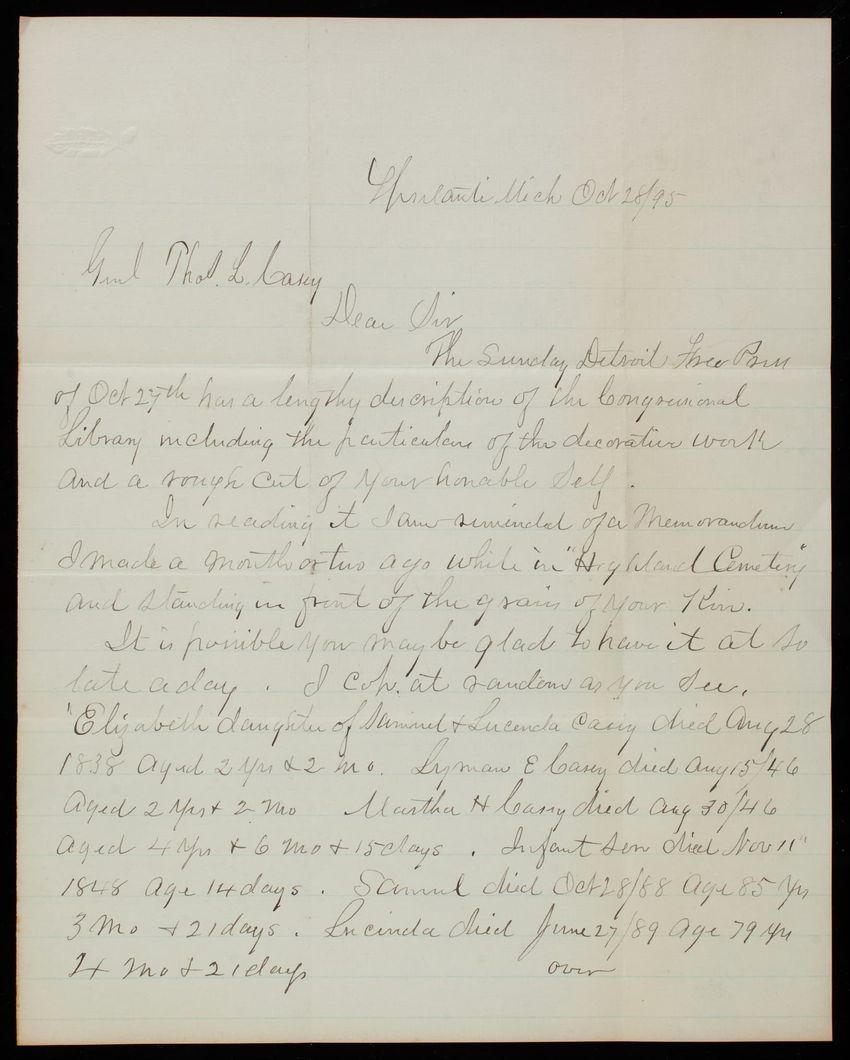 Ypsilanti Mich Oct 28/95
Genl Thos. L. Casey
Dear Sir
The Sunday Detroit Free Press
of Oct 27th has a lengthy description of the Congressional
Library including the particulars of the decorative work
and a rough cut of your honable Self.
In reading it I am reminded of a Memorandum
I made a month or two ago while in "Highland Cemetery"
and standing in front of the graves of your Kin.
It is possible you may be glad to have it at so
late a day. I cop. at random as you see.
"Elizabeth daughter of Samuel & Lucinda Casey died Aug 28
1838 aged 2 Yrs & 2 mo. Lyman E Casey died Aug 15/46
aged 2 Yrs & 2 mo Martha H Casey died Aug 30/46
aged 4 Yrs & 6 mo & 15 days. Infant son died Nov 11"
1848 age 14 days. Samuel died Oct 28/88 age 85 Yrs
3 mo & 21 days. Lucinda died June 27/89 age 79 Yrs
4 mo & 21 days over